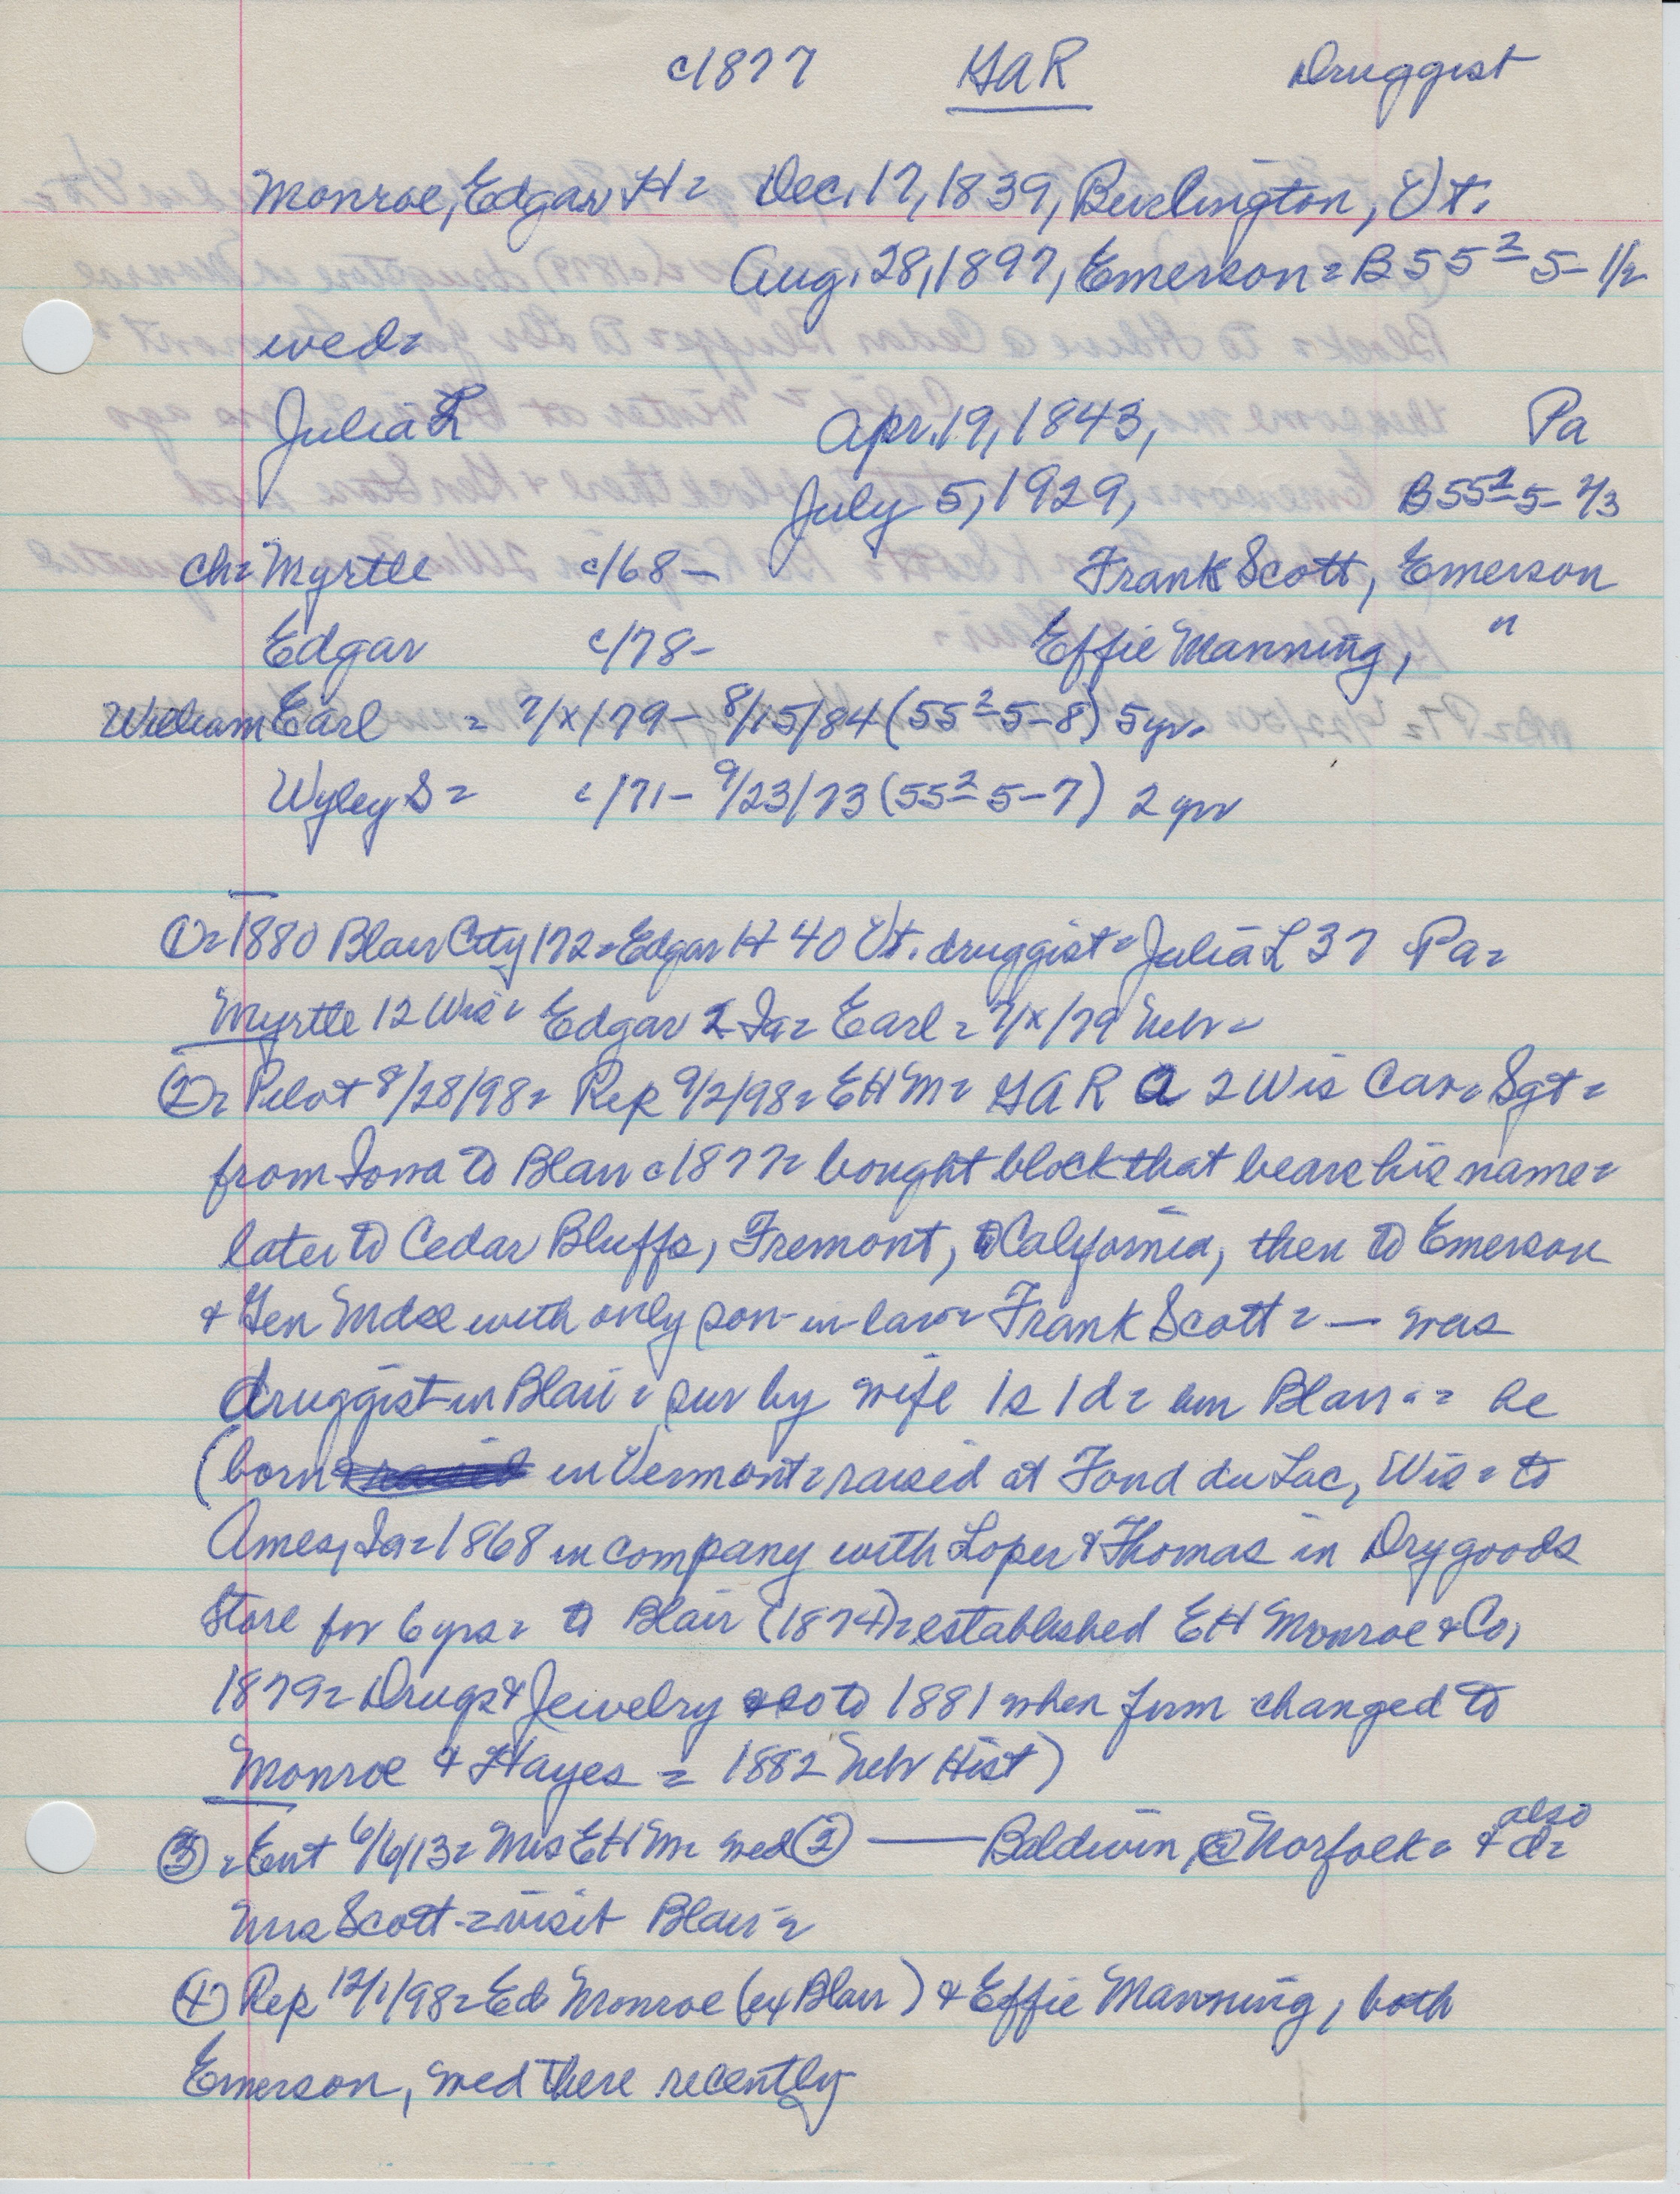 c1877 GAR Druggist
Monroe, Edgar H = Dec. 17, 1839, Burlington, Vt.
Aug. 28, 1897, Emerson = B 55 2 5 - 1/2
wed =
Julia L Apr. 19, 1843, Pa
July 5, 1929, B 55 2 5 - 2/3
Ch = Myrtle c/68 - Frank Scott, Emerson
Edgar c/78 - Effie Manning, "
William Earl = 7/x/79 - 8/15/84 (55 2 5-8) 5 yr.
Wyley S = c/71 - 9/23/73 (55 2 5-7) 2 yr
① = 1880 Blair City 172 = Edgar H 40 Vt. druggist = Julia L 37 Pa =
Myrtle 12 Wis = Edgar 2 Ia = Earl = 7/x/79 Nebr =
② = Pilot 8/28/98 = Rep 9/2/98 = EHM = GAR A 2 Wis Cav = Sgt =
from Iowa to Blair c1877 = bought block that bears his name =
later to Cedar Bluffs, Fremont, to California, then to Emerson
+ Gen Mdse with only son-in-law = Frank Scott = — was
druggist in Blair = sur by wife 1s 1d = Blair = he
(born in Vermont = raised at Fond du Lac, Wis = to
Ames, Ia = 1868 in company with Loper & Thomas in Drygoods
Store for 6 yrs = to Blair (1874) = established EH Monroe & Co,
1879 = Drugs & Jewelry so to 1881 when firm changed to
Monroe & Hayes = 1882 Nebr Hist)
③ = Ent 6/6/13 = Mrs EHM = wed ② —— Baldwin, @ Norfolk = + also d =
Mrs Scott = visit Blair =
④ Rep 12/1/98 = Ed Monroe (ex Blair) & Effie Manning, both
Emerson, wed there recently